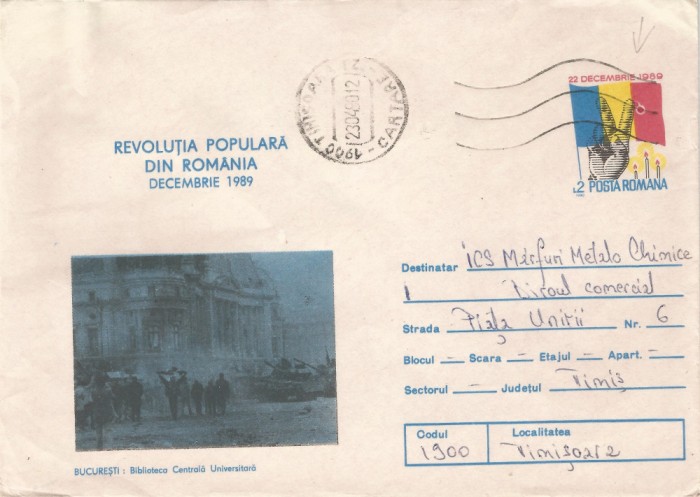 22 DECEMBRIE 1989
L2 POSTA ROMANA
1900 TIMIȘOARA 2 - CARTARE
23.04.90 12
REVOLUȚIA POPULARĂ
DIN ROMÂNIA
DECEMBRIE 1989
BUCUREȘTI : Biblioteca Centrală Universitară
Destinatar ICS Mărfuri Metalo Chimice
Biroul comercial
Strada Piața Unirii Nr. 6
Blocul — Scara — Etajul — Apart. —
Sectorul — Județul Timiș
Codul Localitatea
1900 Timișoara